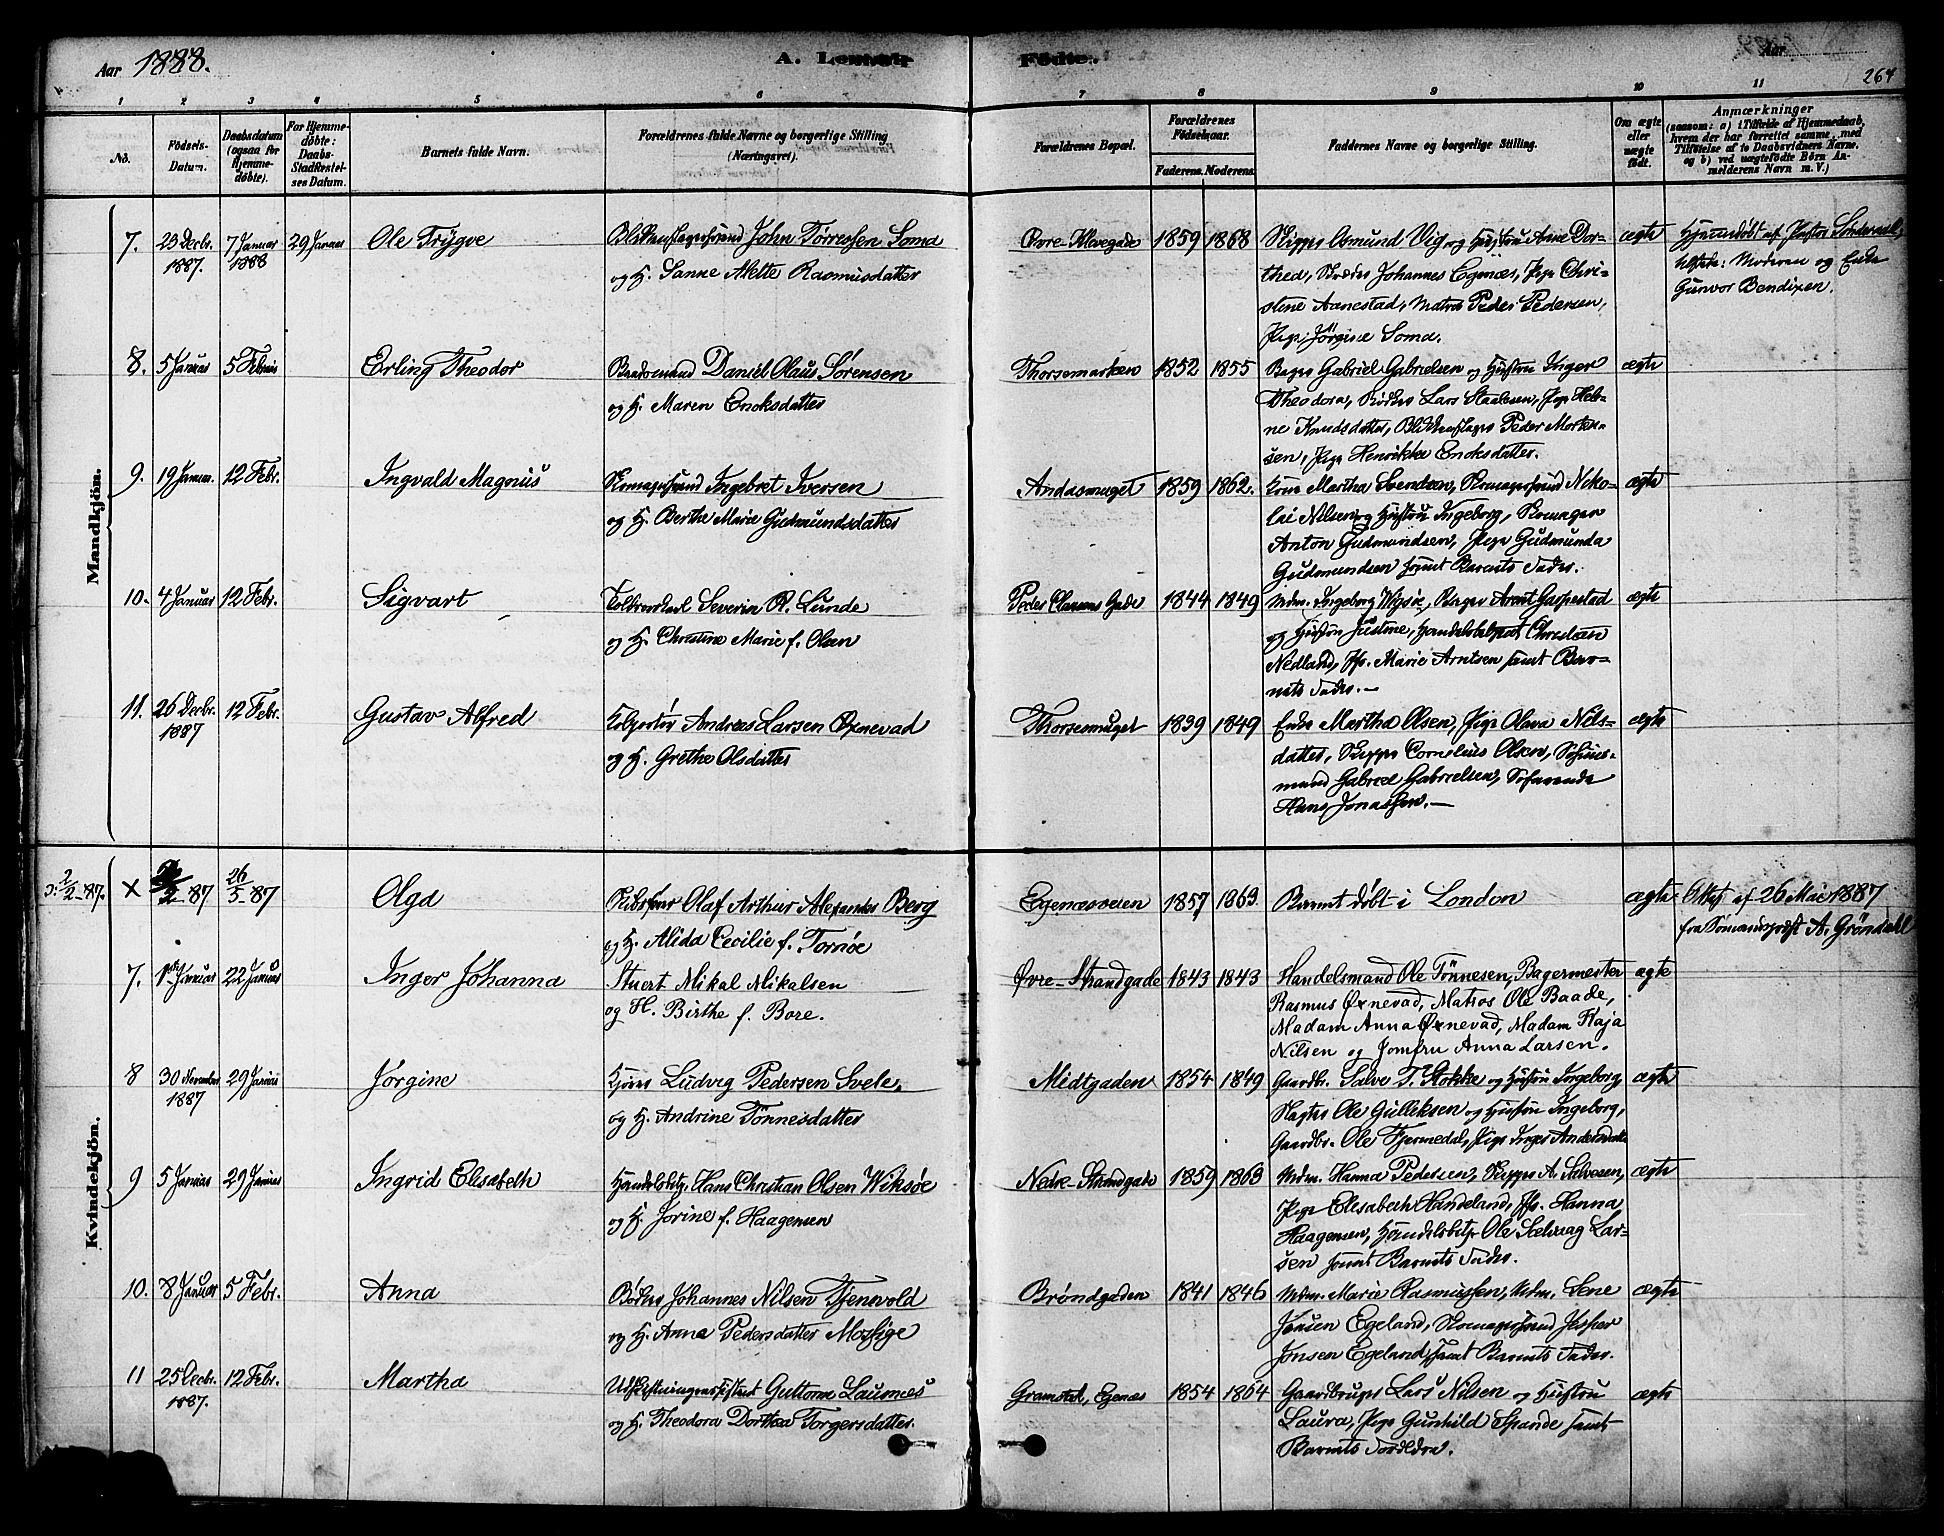 Aar 1888.
A. Levende Fødte.
Aar
264
1 2 3 4 5 6 7 8 9 10 11
No.
Fødsels-Datum.
Daabsdatum (ogsaa for Hjemmedøbte).
For Hjemmedøbte: Daabs-Stadfæstelses Datum.
Barnets fulde Navn.
Forældrenes fulde Navne og borgerlige Stilling (Næringsvei).
Forældrenes Bopæl.
Forældrenes Fødselsaar.
Faderens. Moderens.
Faddernes Navne og borgerlige Stilling.
Om ægte eller uægte født.
Anmærkninger
(saasom: a) i Tilfælde af Hjemmedaab, hvem der har forrettet samme, med Tilføielse af to Daabsvidners Navne, og b) ved uægtefødte Børn Anmelderens Navn m. V.)
Mandkjön.
7. 23 Decbr. 7 Januar 29 Januar Ole Trygve John Torressen Soma Øvre Klevegade 1859 1868 Skipper Osmund Vig og Hustru Anne Dor- ægte Hjemmedøbt af Pastor
1887. 1888 og H. Sanne Mette Rasmusdatter thea, Johannes Egenæs, Pige Chri- Moderen og Enke
stine Aanestad, Matros Peder Pedersen, Gunvor Bendixen.
Pige Jörgine Soma.
8. 5 Januar 5 Februar Erling Theodor Daniel Olaus Sørensen Thorsemarken 1852 1855 Bager Gabriel Gabrielsen og Hustru Inger ægte
og H. Maren Enoksdatter Theodora, Bødker Lars Staalesen, Pige Hele-
ne Knudsdatter, Blikkenslager Peder Morten-
sen, Pige Henrikke Enoksdatter.
9. 19 Januar. 12 Febr. Ingvald Magnus Skomagersvend Ingebret Iversen Andasmuget 1859 1862. Kone Martha Svendsen, Skomagersvend Niko- ægte
og H. Berthe Marie Gudmundsdatter lai Nilsen og Hustru Ingeborg, Skomager
Anton Gudmundsen, Pige Gudmunda
Gudmundsen samt Barnets Fader.
10. 4 Januar 12 Febr. Sigvart Severin R. Lunde Peder Clausens Gade 1844 1849 Mdm. Ingeborg Wigsøe, Bager Arent Gaspestad ægte
og H. Christine Marie f. Olsen og Hustru Justine, Handelsbetjent Christian
Nedland, Jfr. Marie Arntsen samt Bar-
nets Fader.—
11. 26 Decbr. 12 Febr. Gustav Alfred Andreas Larsen Øxnevad Thorsemuget 1839 1849 Enke Martha Olsen, Pige Olava Nils- ægte
1887 og H. Grethe Olsdatter datter, Skipper Cornelius Olsen,
Gabriel Gabrielsen, Søfarende
Hans Jonassen.—
Kvindekjön.
ɔ: 2/2-87. × 2/2-87 26/5-87 Olga Olaf Arthur Alexander Berg Egenæsveien 1857 1863 Barnet døbt i London ægte Attest af 26 Mai 1887
og H. Alida Cecilie f. Tornøe fra Sømandsprest A. Gröndahl
7. 1ste Januar 22 Januar Inger Johanna Stuert Mikal Mikalsen Øvre-Strandgade 1843 1843 Handelsmand Ole Tönnesen, Bagermester ægte
og H. Birthe f. Bore. Rasmus Øxnevad, Matros Ole Baade,
Madam Anna Øxnevad, Madam Kaja
Nilsen og Jomfru Anna Larsen.
8 30 November 29 Januar Jørgine Ludvig Pedersen Svele, Midtgaden 1854 1849 Gaardbr. Salve T. Stokke og Hustru Ingeborg ægte
1887 og H. Andrine Tönnesdatter Slagter Ole Gulliksen og Hustru Ingeborg,
Gaardbr. Ole Fjermedal, Pige Inger Andersdatter
9 5 Januar 29 Januar Ingrid Elisabeth Handelsbetj. Hans Christian Olsen Wiksøe Nedre-Strandgade 1859 1863 Mdm. Hanna Pedersen, Skipper A. Salvesen, ægte
og H. Jorine f. Haagensen Pige Elisabeth Handeland, Jfr. Hanna
Haagensen, Handelsbetjt. Ole Selvaag Lar-
sen samt Barnets Fader.
10. 8 Januar 5 Febr. Anna Bødker Johannes Nilsen Tjensvold Brøndgaden 1841 1846 Mdm. Marie Rasmussen, Mdm. Lene ægte
og H. Anna Pedersdatter Mossige Jonsen Egeland, Skomagersvend Jesper
Jonsen Egeland, samt Barnets Fader.
11 25 Decbr. 12 Febr. Martha Udskiftningsassistent Guttorm Laumes Gramstad, Egenæs 1854 1864 Gaardbruger Lars Nilsen og Hustru ægte
1887. og H. Theodora Dorthea Torgersdatter. Laura, Pige Gunhild Spande samt
Barnets Forældre.